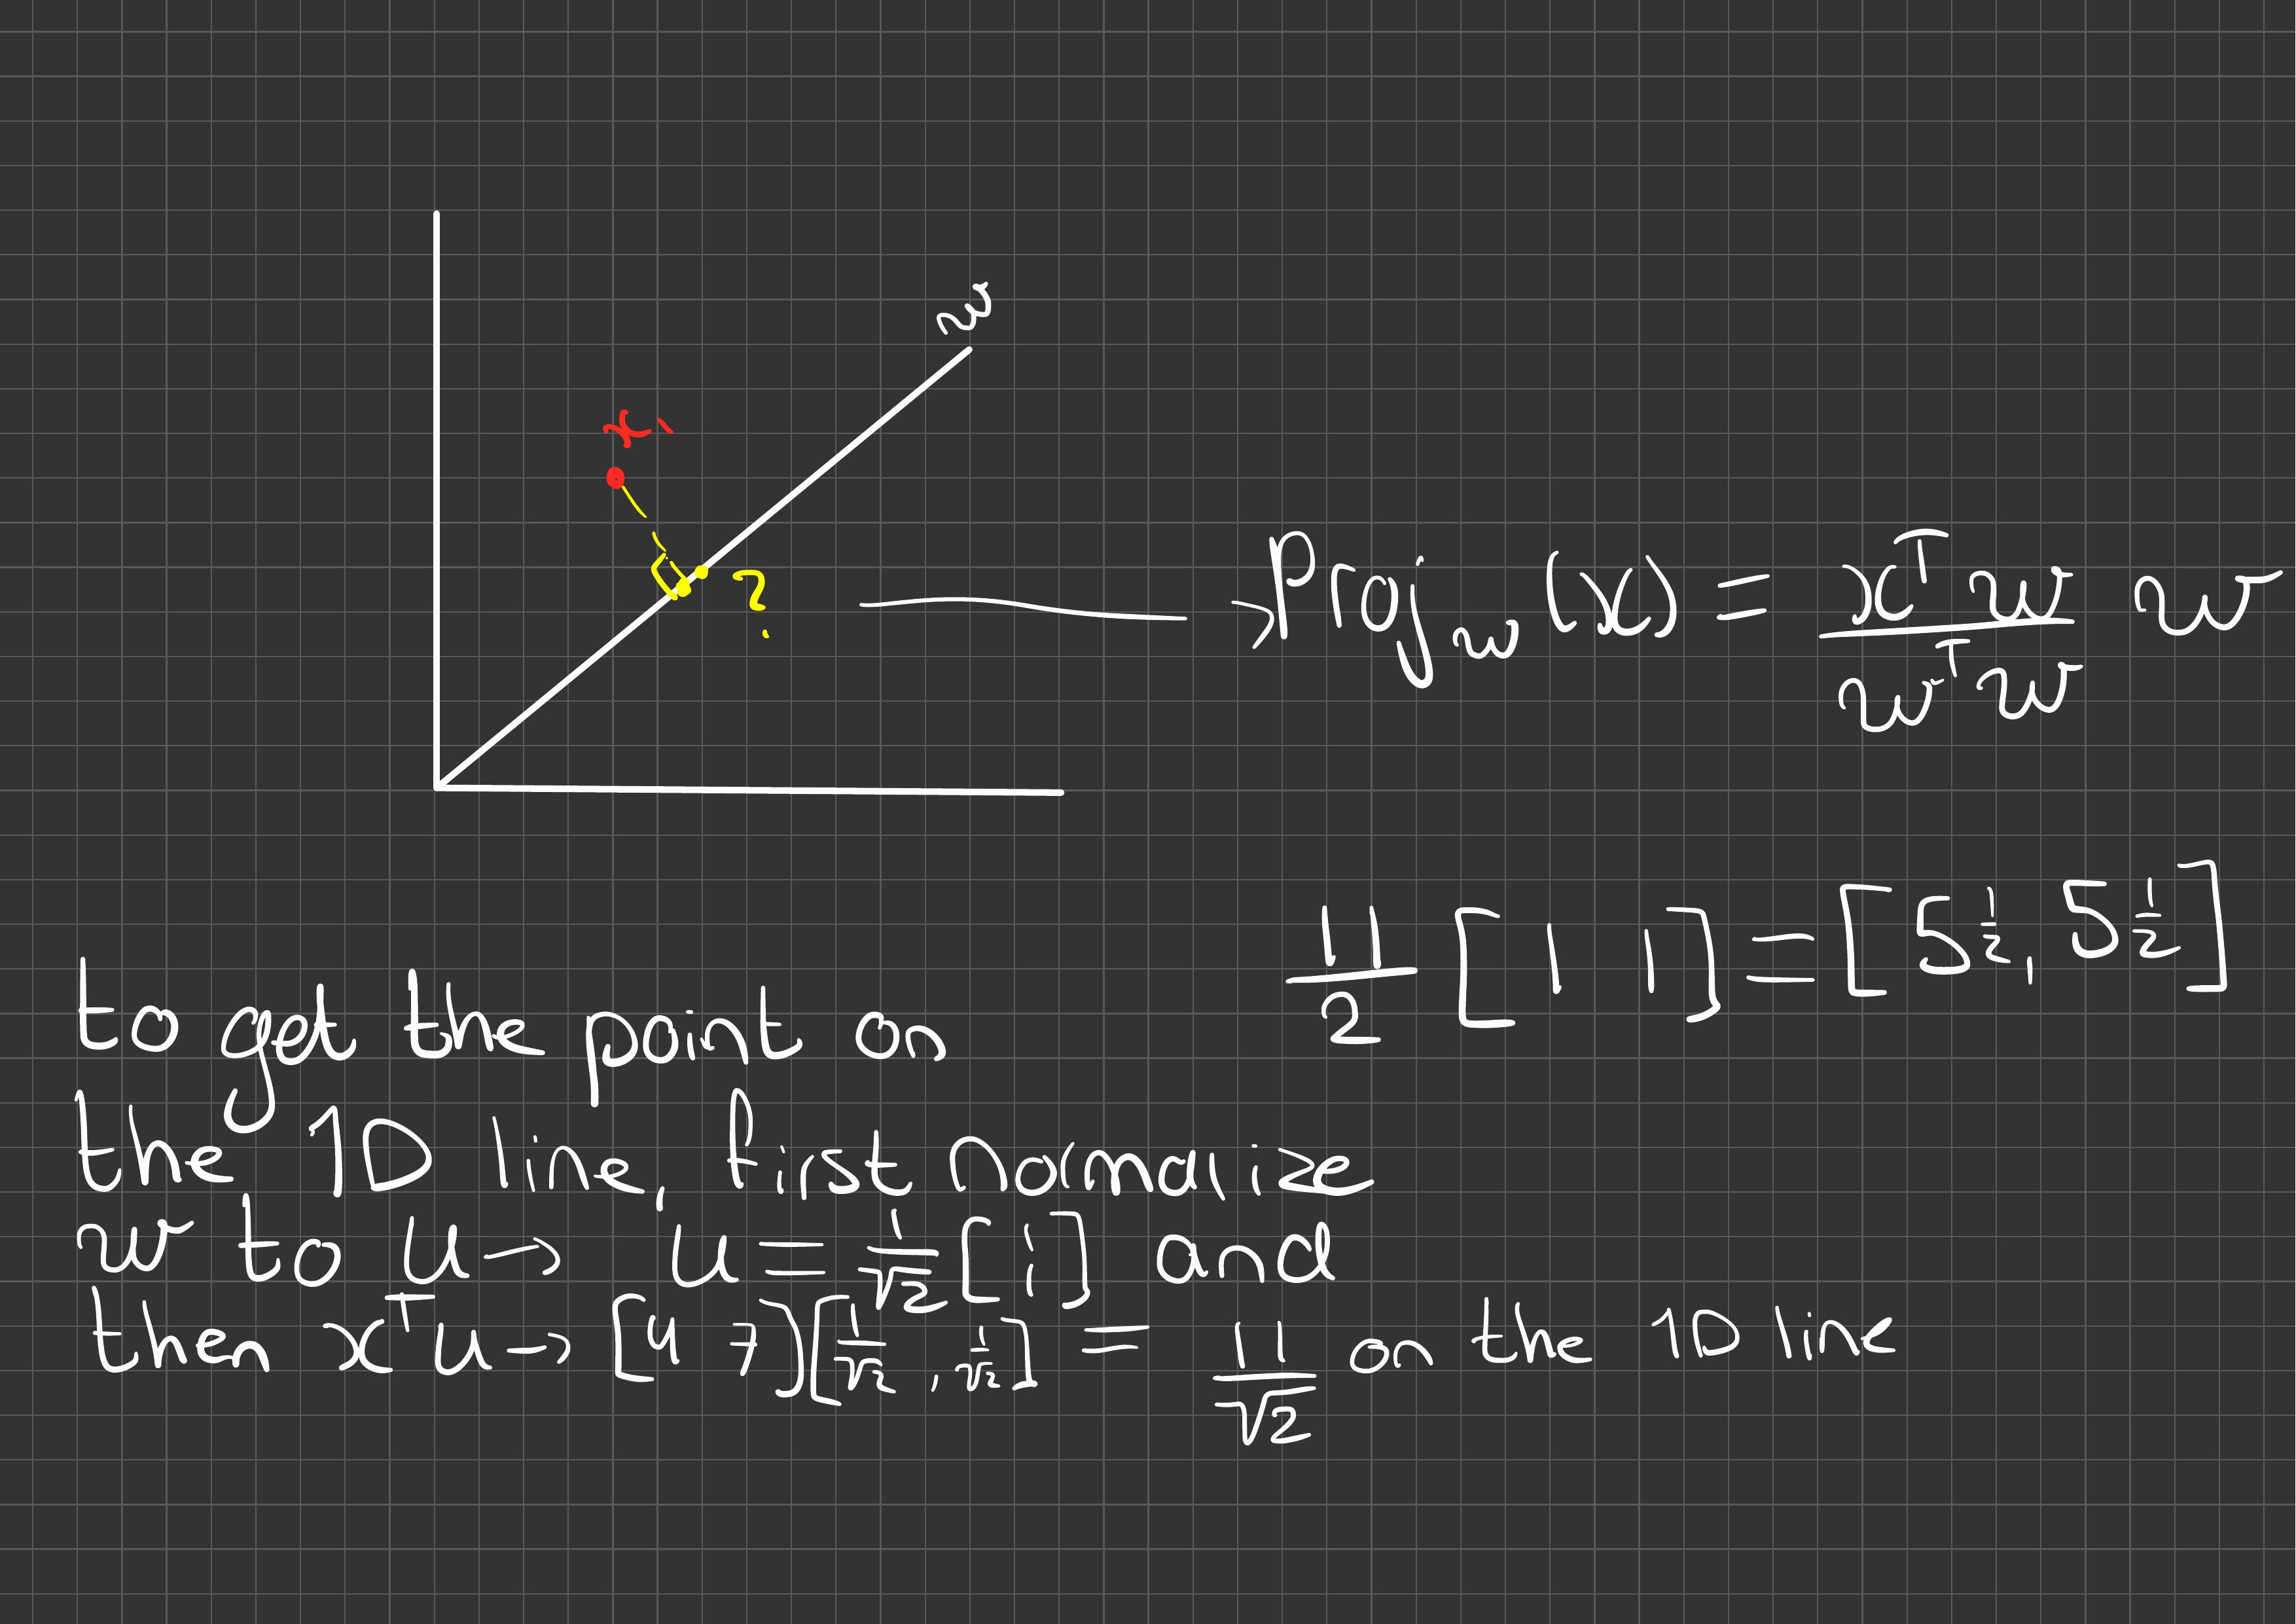 w
x₁
?
→ Proj_w(x) = xᵀw / wᵀw w
11/2 [1 1] = [5 1/2, 5 1/2]
to get the point on
the 1D line, first normalize
w to u → u = 1/√2 [1 1] and
then xᵀu → [4 7][1/√2, 1/√2] = 11/√2 on the 1D line